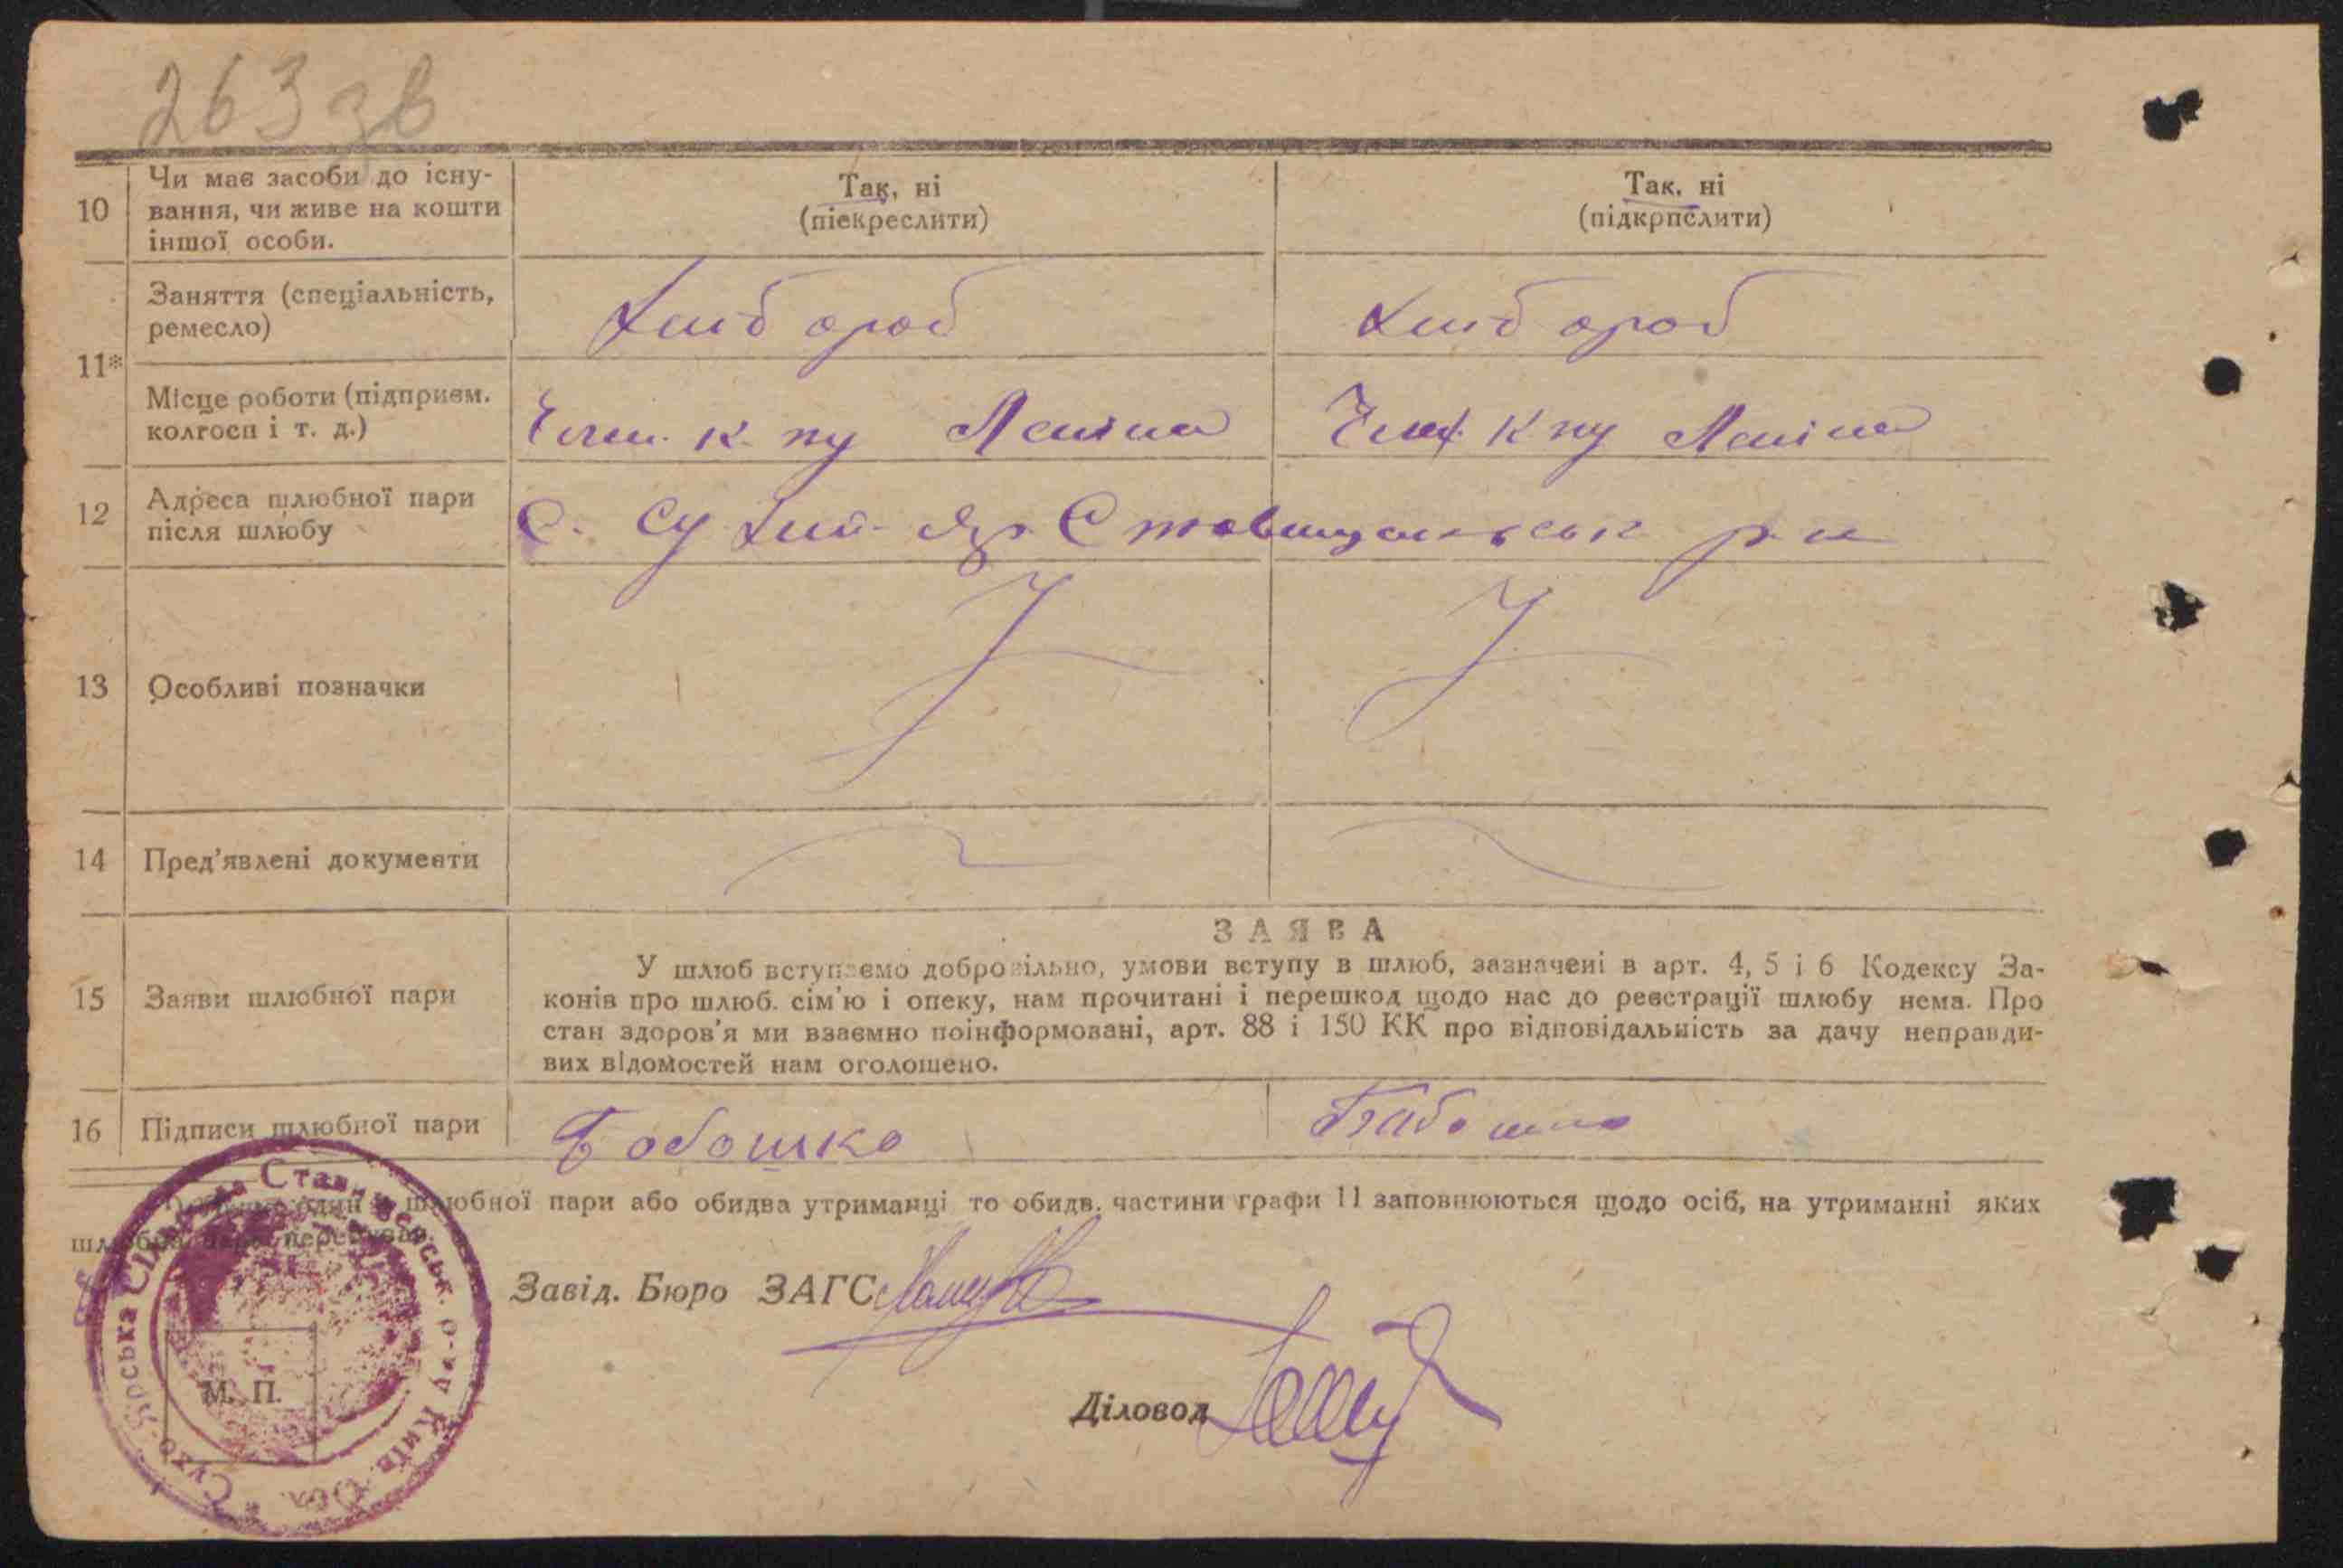 263 зв
10
Чи має засоби до існу-
вання, чи живе на кошти
іншої особи.
Так, ні
(піекреслити)
Так. ні
(підкрпслити)
11*
Заняття (спеціальність,
ремесло)
Хліб ороб
Хліб ороб
Місце роботи (підприєм.
колгосп і т. д.)
Член. к. пу Леніна
Член к пу Леніна
12
Адреса шлюбної пари
після шлюбу
С. Сухий-Яр. Ставищанськ р-н
13
Особливі позначки
14
Пред'явлені документи
15
Заяви шлюбної пари
ЗАЯВА
У шлюб вступаємо добровільно, умови вступу в шлюб, зазначені в арт. 4, 5 і 6 Кодексу За-
конів про шлюб. сім'ю і опеку, нам прочитані і перешкод щодо нас до реєстрації шлюбу нема. Про
стан здоров'я ми взаємно поінформовані, арт. 88 і 150 КК про відповідальність за дачу неправди-
вих відомостей нам оголошено.
16
Підписи шлюбної пари
Бабошко
Бабошко
один з шлюбної пари або обидва утриманці то обидв. частини графи 11 заповнюються щодо осіб, на утриманні яких
шлюбна пара перебуває.
Завід. Бюро ЗАГС
Діловод
М. П.
Сухо-Ярська Сільрада Ставищанськ. р-ну Київ. Обл. *